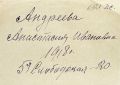 Андреева
Анастасия Ивановна
1918г.
5я Слободская - 20